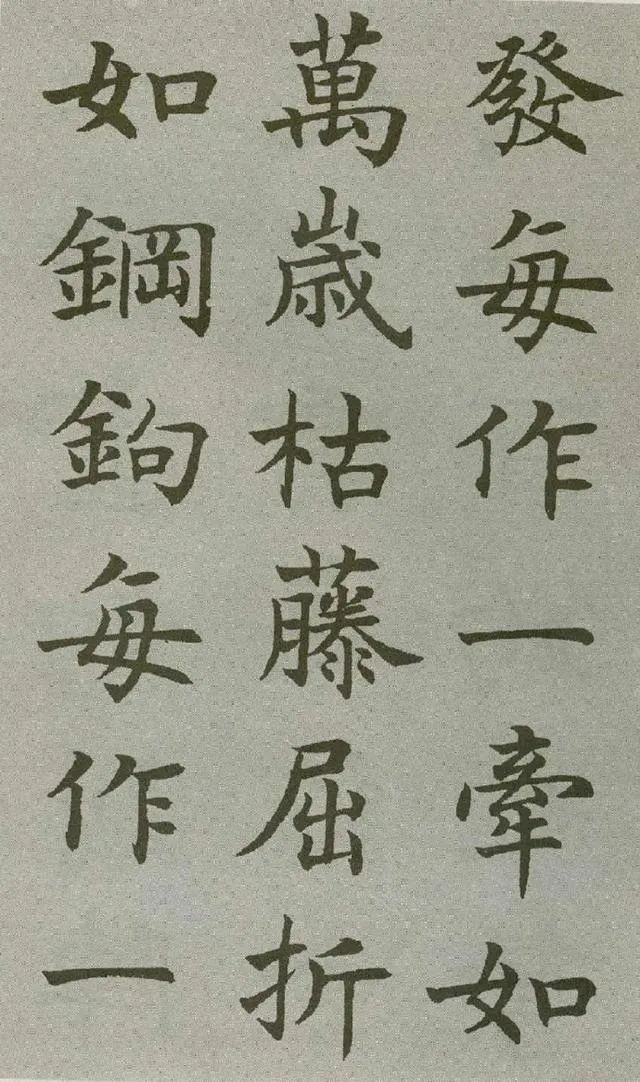 發每作一牽如
萬歲枯藤屈折
如鋼鉤每作一